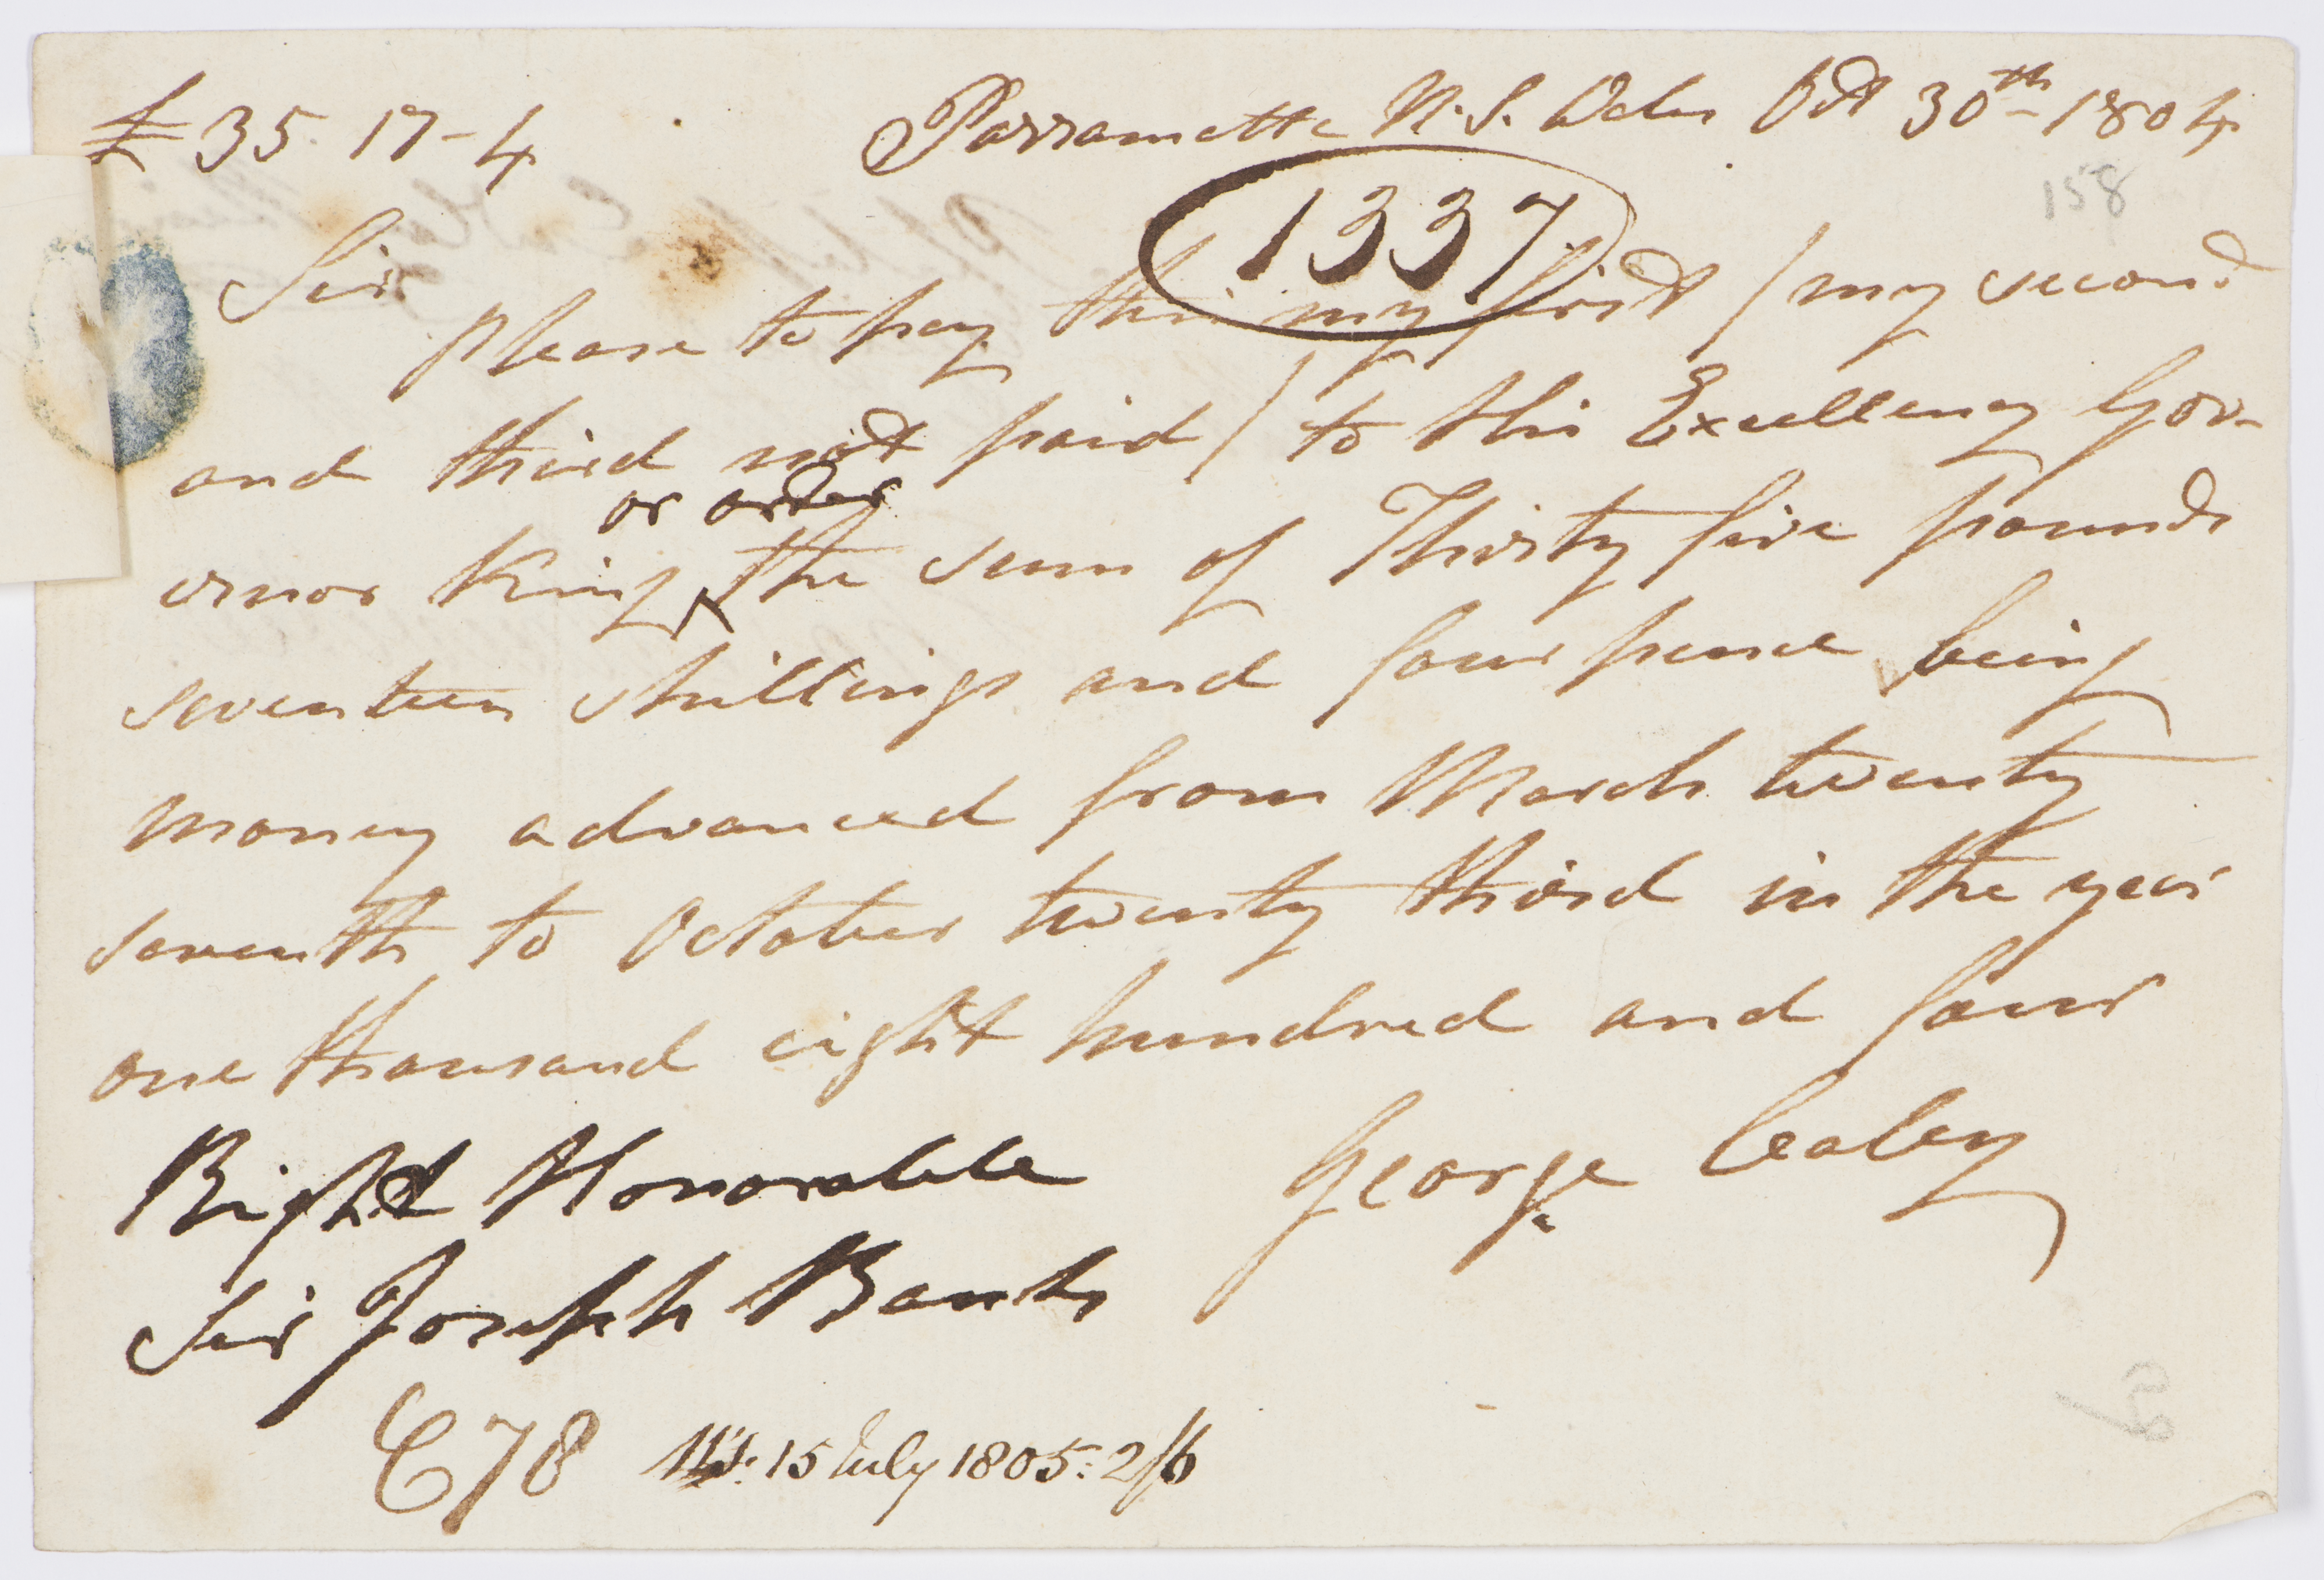 £35. 17-4 Parramatta N. S. Wales Oct 30th 1804
158
1337
Sir
please to pay this my first / my second
and third not paid / to His Excellency Gov-
or order
ernor King ^ the sum of Thirty five pounds
seventeen shillings and four pence being
money advanced from March twenty
seventh to October twenty third in the year
one thousand eight hundred and four
Right Honorable George Caley
Sir Joseph Banks
C78 15 July 1805: 2/6